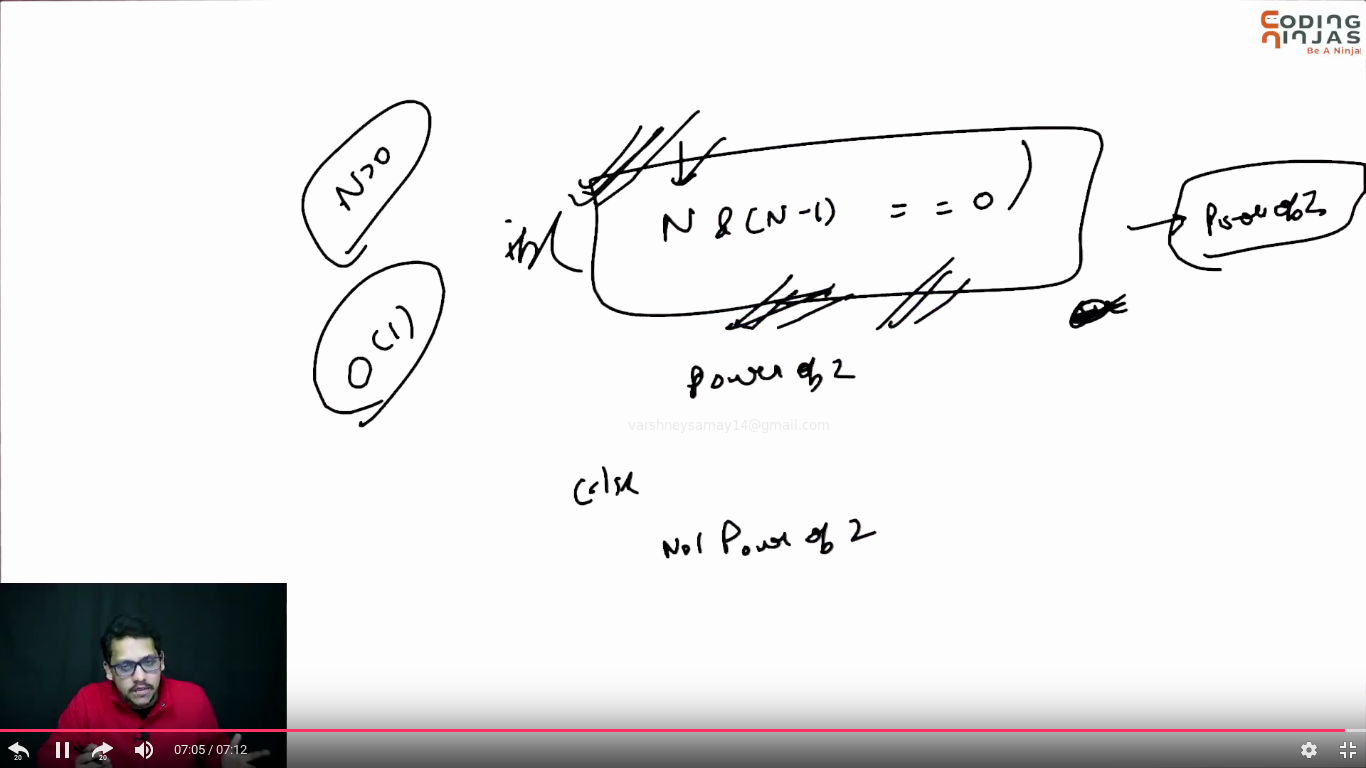 CODING
NINJAS
Be A Ninja
N>0
if( N & (N-1) == 0 )
Power of 2
O(1)
Power of 2
varshneysamay14@gmail.com
else
Not Power of 2
20
20
07:05 / 07:12